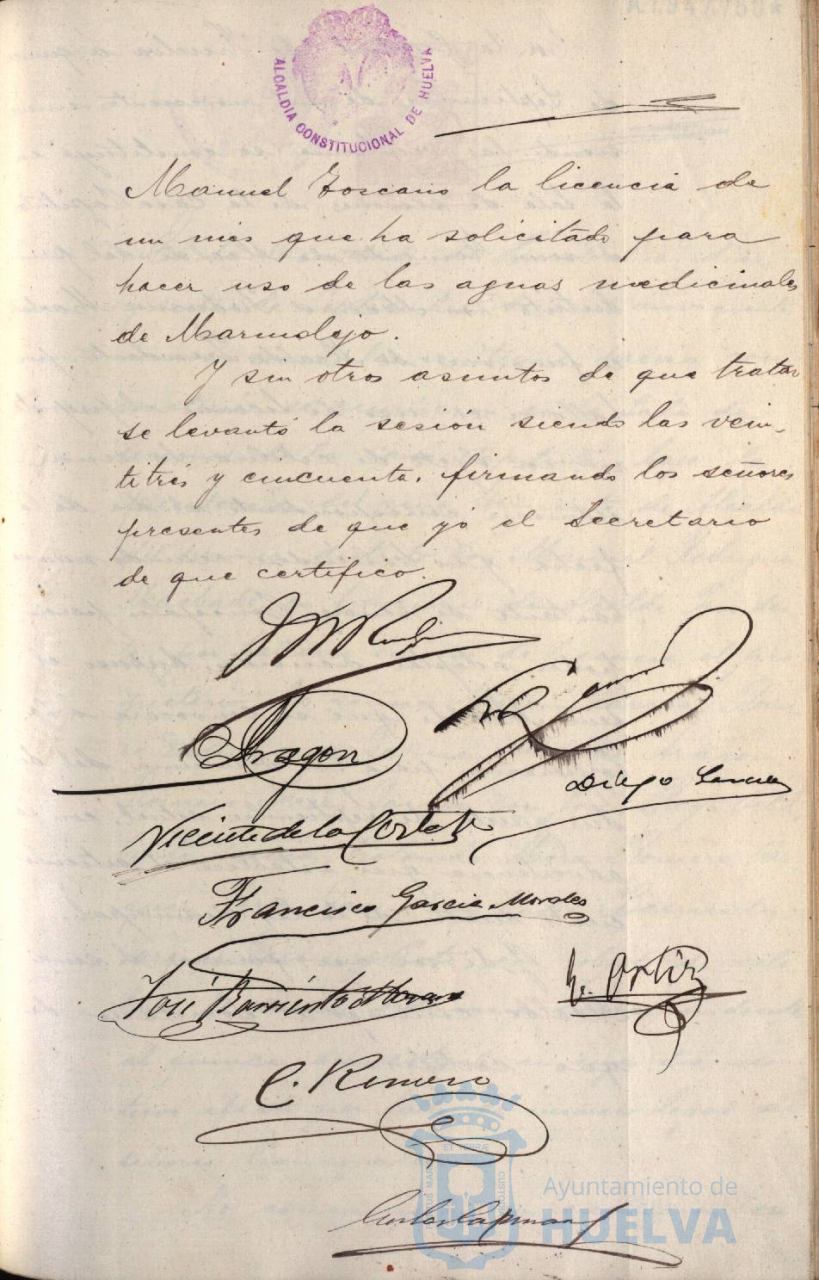 A1.947.780*
ALCALDIA CONSTITUCIONAL DE HUELVA
Manuel Toscano la licencia de
un mes que ha solicitado para
hacer uso de las aguas medicinales
de Marmolejo.
Y sin otros asuntos de que tratar
se levantó la sesión siendo las vein-
titrés y cincuenta, firmando los señores
presentes de que yó el Secretario
de que certifico.
Aragon
Diego
Vicente de la Corte
Francisco Garcia Morales
José Barriento
Ortiz
C. Romero
Ayuntamiento de
HUELVA